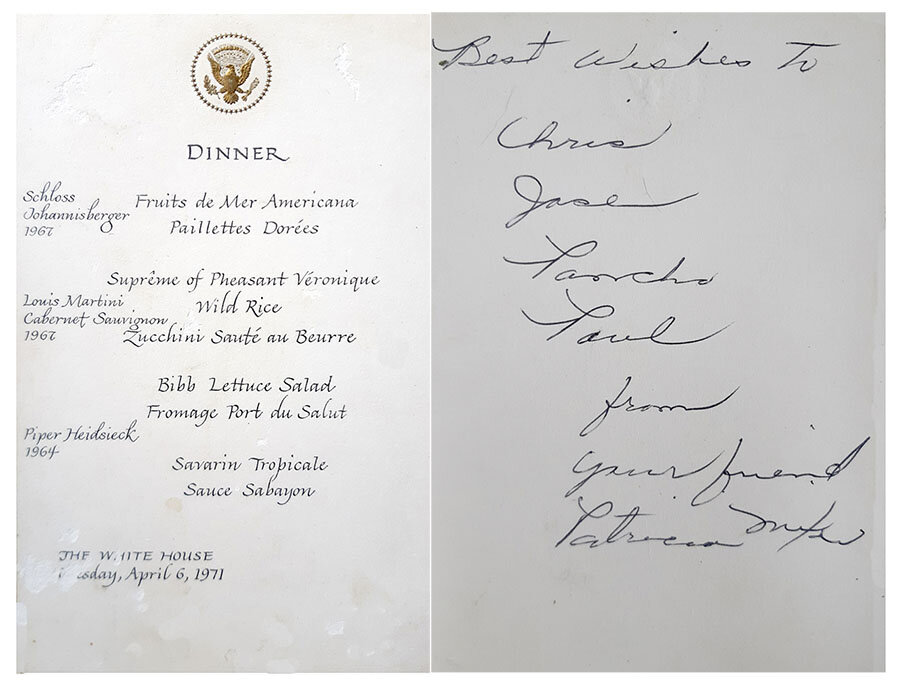 DINNER
Schloss
Johannisberger
1967
Fruits de Mer Americana
Paillettes Dorées
Suprême of Pheasant Véronique
Louis Martini
Cabernet Sauvignon
1967
Wild Rice
Zucchini Sauté au Beurre
Bibb Lettuce Salad
Fromage Port du Salut
Piper Heidsieck
1964
Savarin Tropicale
Sauce Sabayon
THE WHITE HOUSE
Tuesday, April 6, 1971
Best Wishes To
Chris
Jose
Pancho
Paul
from
your friend
Patricia Nixon